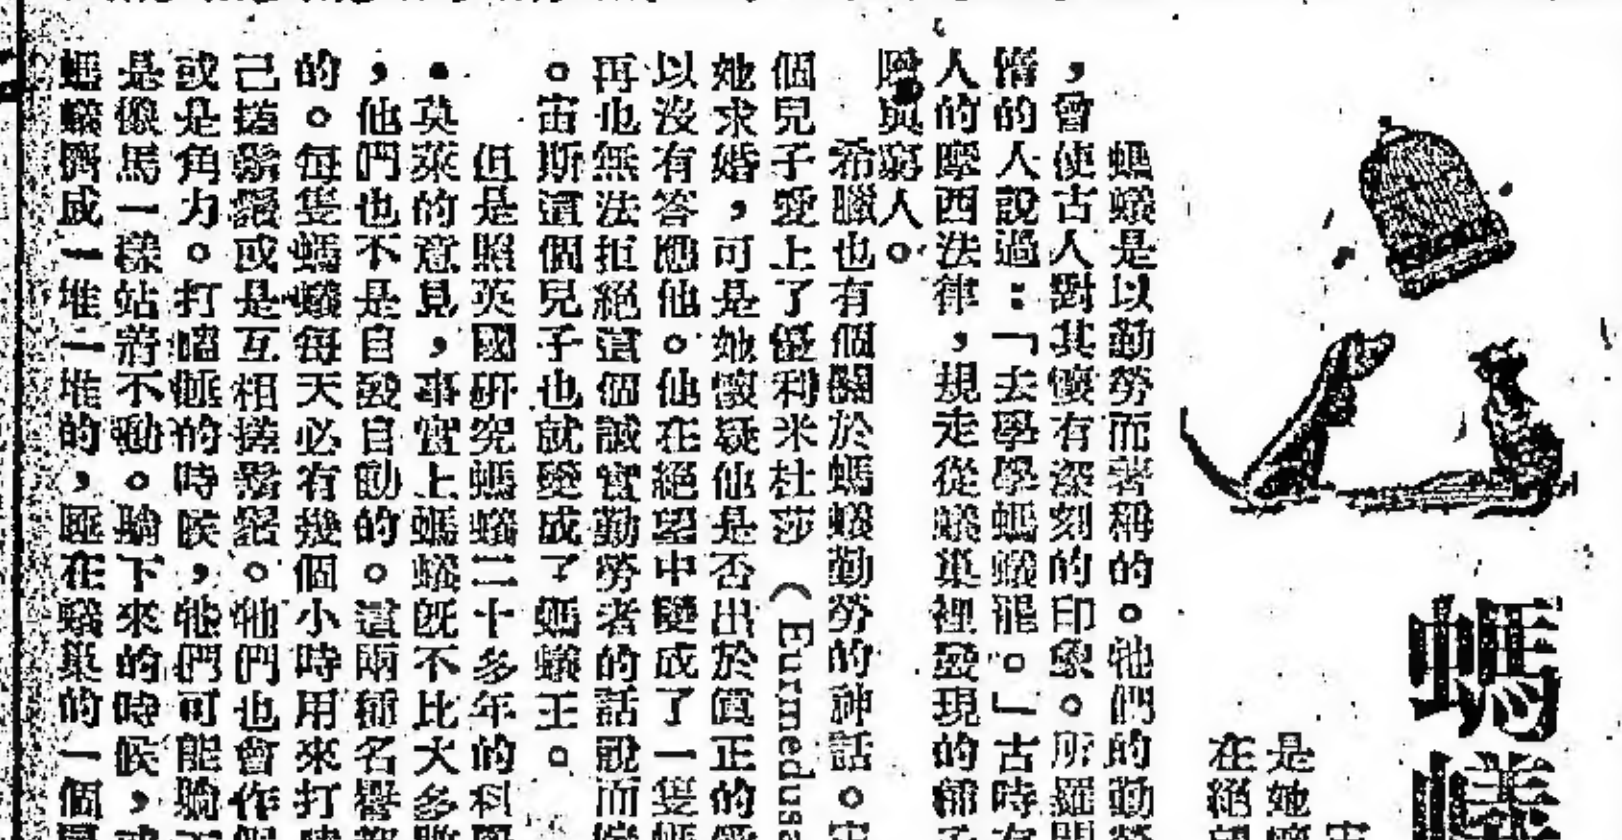 螞蟻
是她
在絕
螞蟻是以勤勞而著稱的。牠們的勤勞
，曾使古人對其懷有深刻的印象。所羅門
惰的人說過：「去學學螞蟻罷。」古時有
人的摩西法律，規定從蟻巢裡發現的
與窮人。
希臘也有個關於螞蟻勤勞的神話。宙
個兒子愛上了優利米杜莎（Eurmedusa
她求婚，可是她懷疑他是否出於眞正的愛
以沒有答應他。他在絕望中變成了一隻螞
再也無法拒絕這個誠實勤勞者的話說而
。宙斯這個兒子也就變成了螞蟻王。
但是照英國研究螞蟻二十多年的科學
・英萊的意見，事實上螞蟻旣不比大多數
，他們也不是自發自動的。這兩種名譽都
的。每隻螞蟻每天必有幾個小時用來打
己搓鬍鬚或是互相搓鬍鬚。牠們也會作
或是角力。打瞌睡的時候，牠們可能躺
是像馬一樣站着不動。躺下來的時候，或
螞蟻擠成一堆一堆的，睡在蟻巢的一個